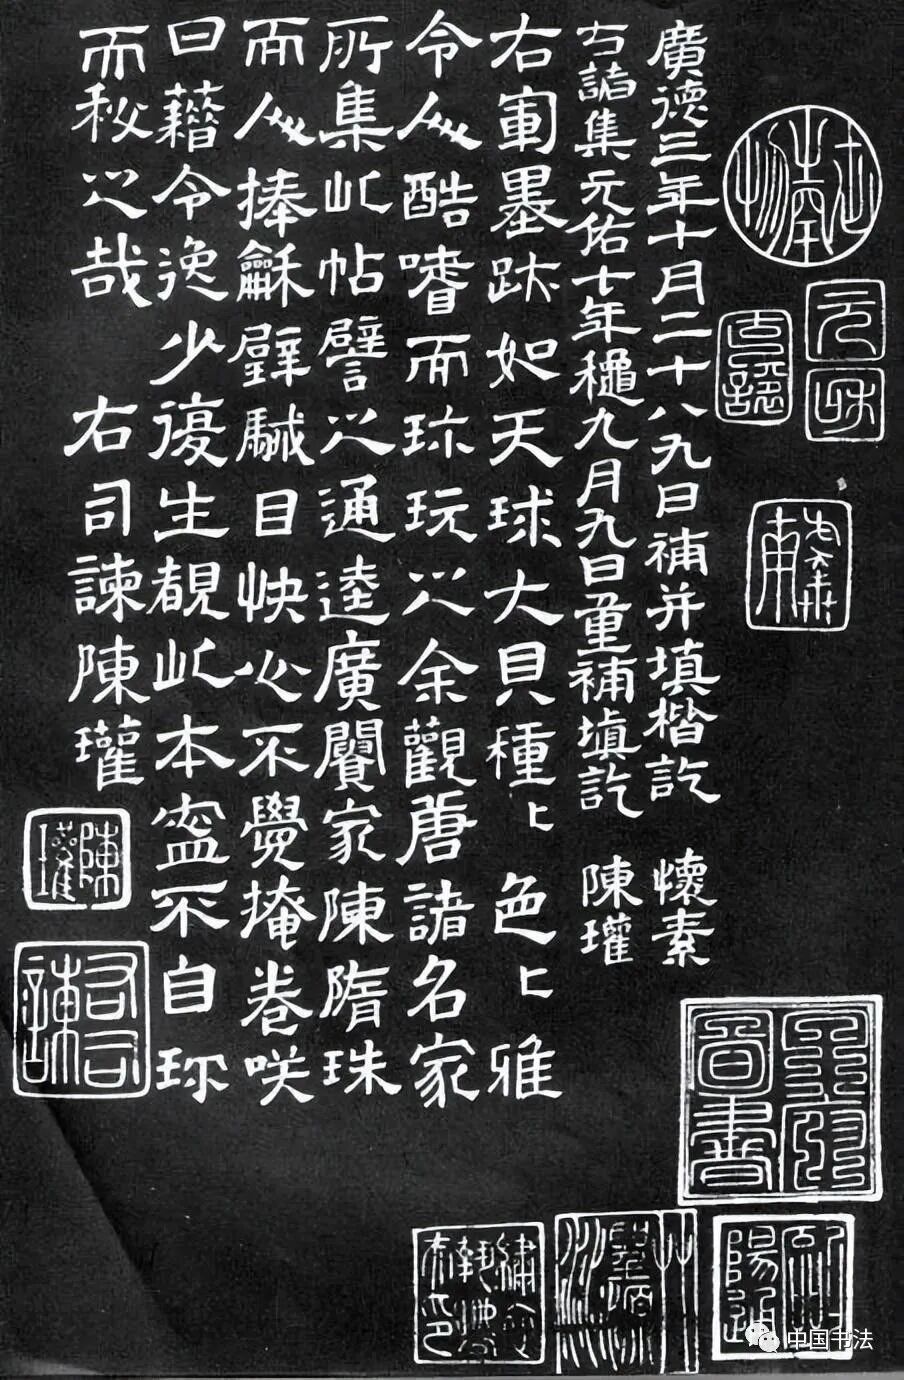 廣德三年十月二十八九日補并填楷訖 懷素
諸集元佑七年穐九月九日重補填訖 陳瓘
右軍墨跡如天球大貝種〻色〻雅
令人酷嗜而珎玩之余觀唐諸名家
所集此帖譬之通逵廣闠家陳隋珠
而人捧龢璧駴目快心不覺掩卷咲
曰藉令逸少復生覩此本寍不自珎
而秘之哉 右司諫陳瓘
陳瓘
右司諫
元和
圖書
中国书法